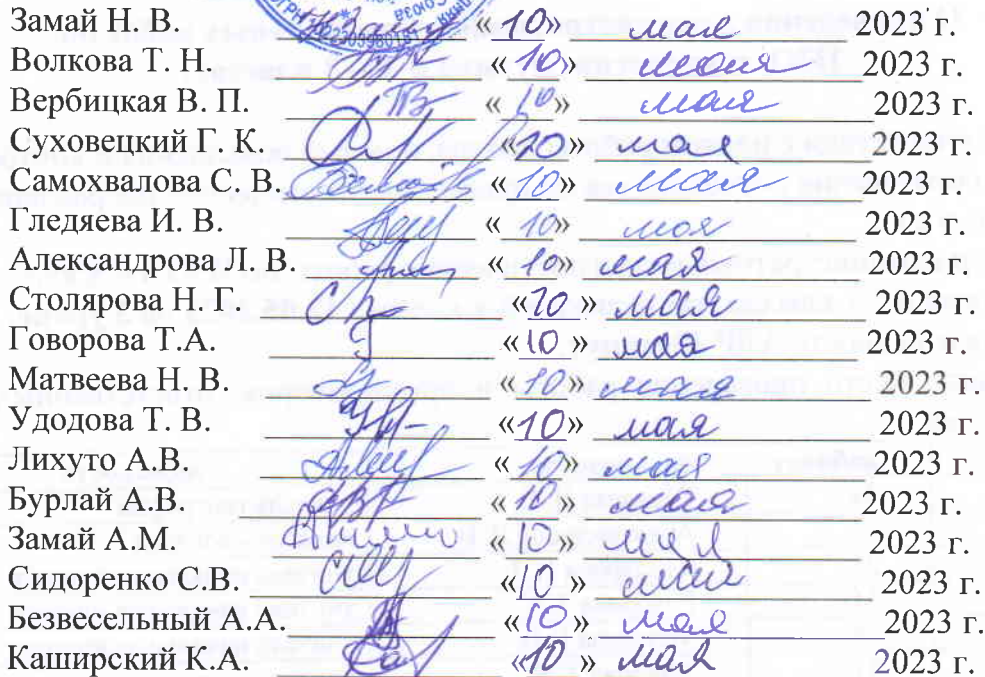 Замай Н. В. «10» мая 2023 г.
Волкова Т. Н. «10» мая 2023 г.
Вербицкая В. П. «10» мая 2023 г.
Суховецкий Г. К. «10» мая 2023 г.
Самохвалова С. В. «10» мая 2023 г.
Гледяева И. В. «10» мая 2023 г.
Александрова Л. В. «10» мая 2023 г.
Столярова Н. Г. «10» мая 2023 г.
Говорова Т.А. «10» мая 2023 г.
Матвеева Н. В. «10» мая 2023 г.
Удодова Т. В. «10» мая 2023 г.
Лихуто А.В. «10» мая 2023 г.
Бурлай А.В. «10» мая 2023 г.
Замай А.М. «10» мая 2023 г.
Сидоренко С.В. «10» мая 2023 г.
Безвесельный А.А. «10» мая 2023 г.
Каширский К.А. «10» мая 2023 г.